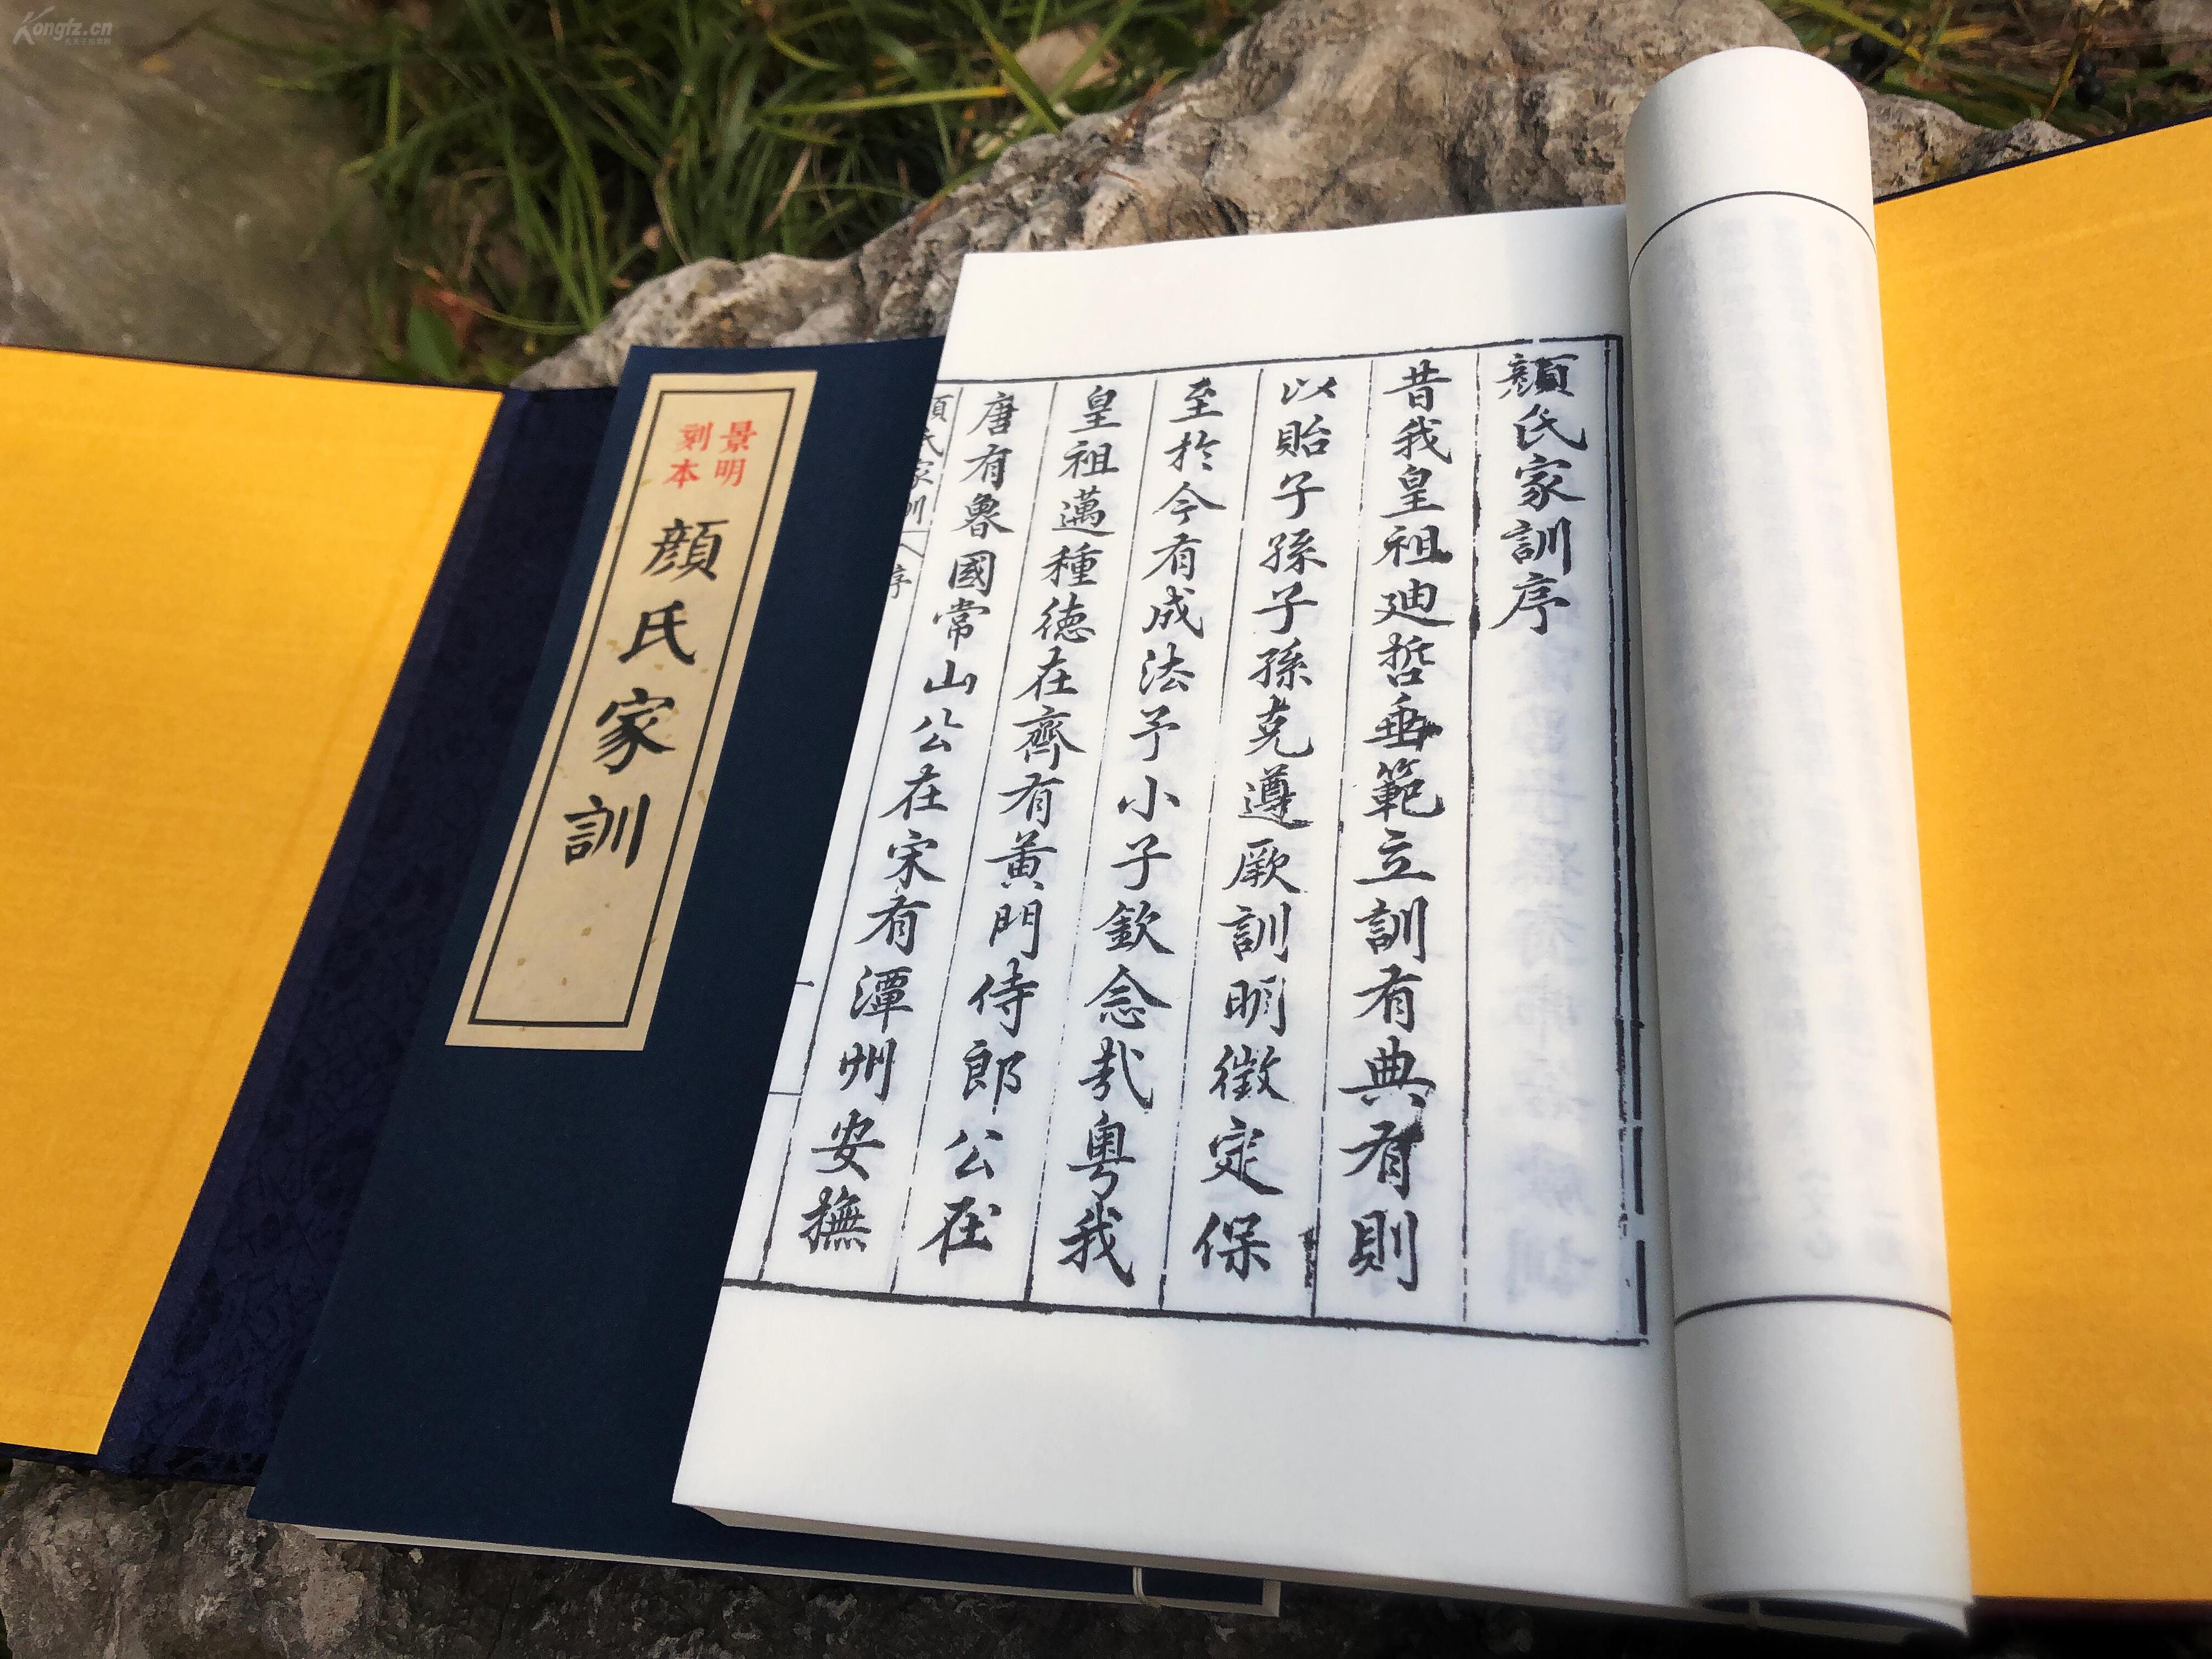 Kongfz.cn
顏氏家訓序
昔我皇祖迪哲垂範立訓有典有則
以貽子孫子孫克遵厥訓明徵定保
至於今有成法予小子欽念哉粵我
皇祖邁種德在齊有黃門侍郎公在
唐有魯國常山公在宋有潭州安撫
顏氏家訓
序
景明
刻本
顏氏家訓